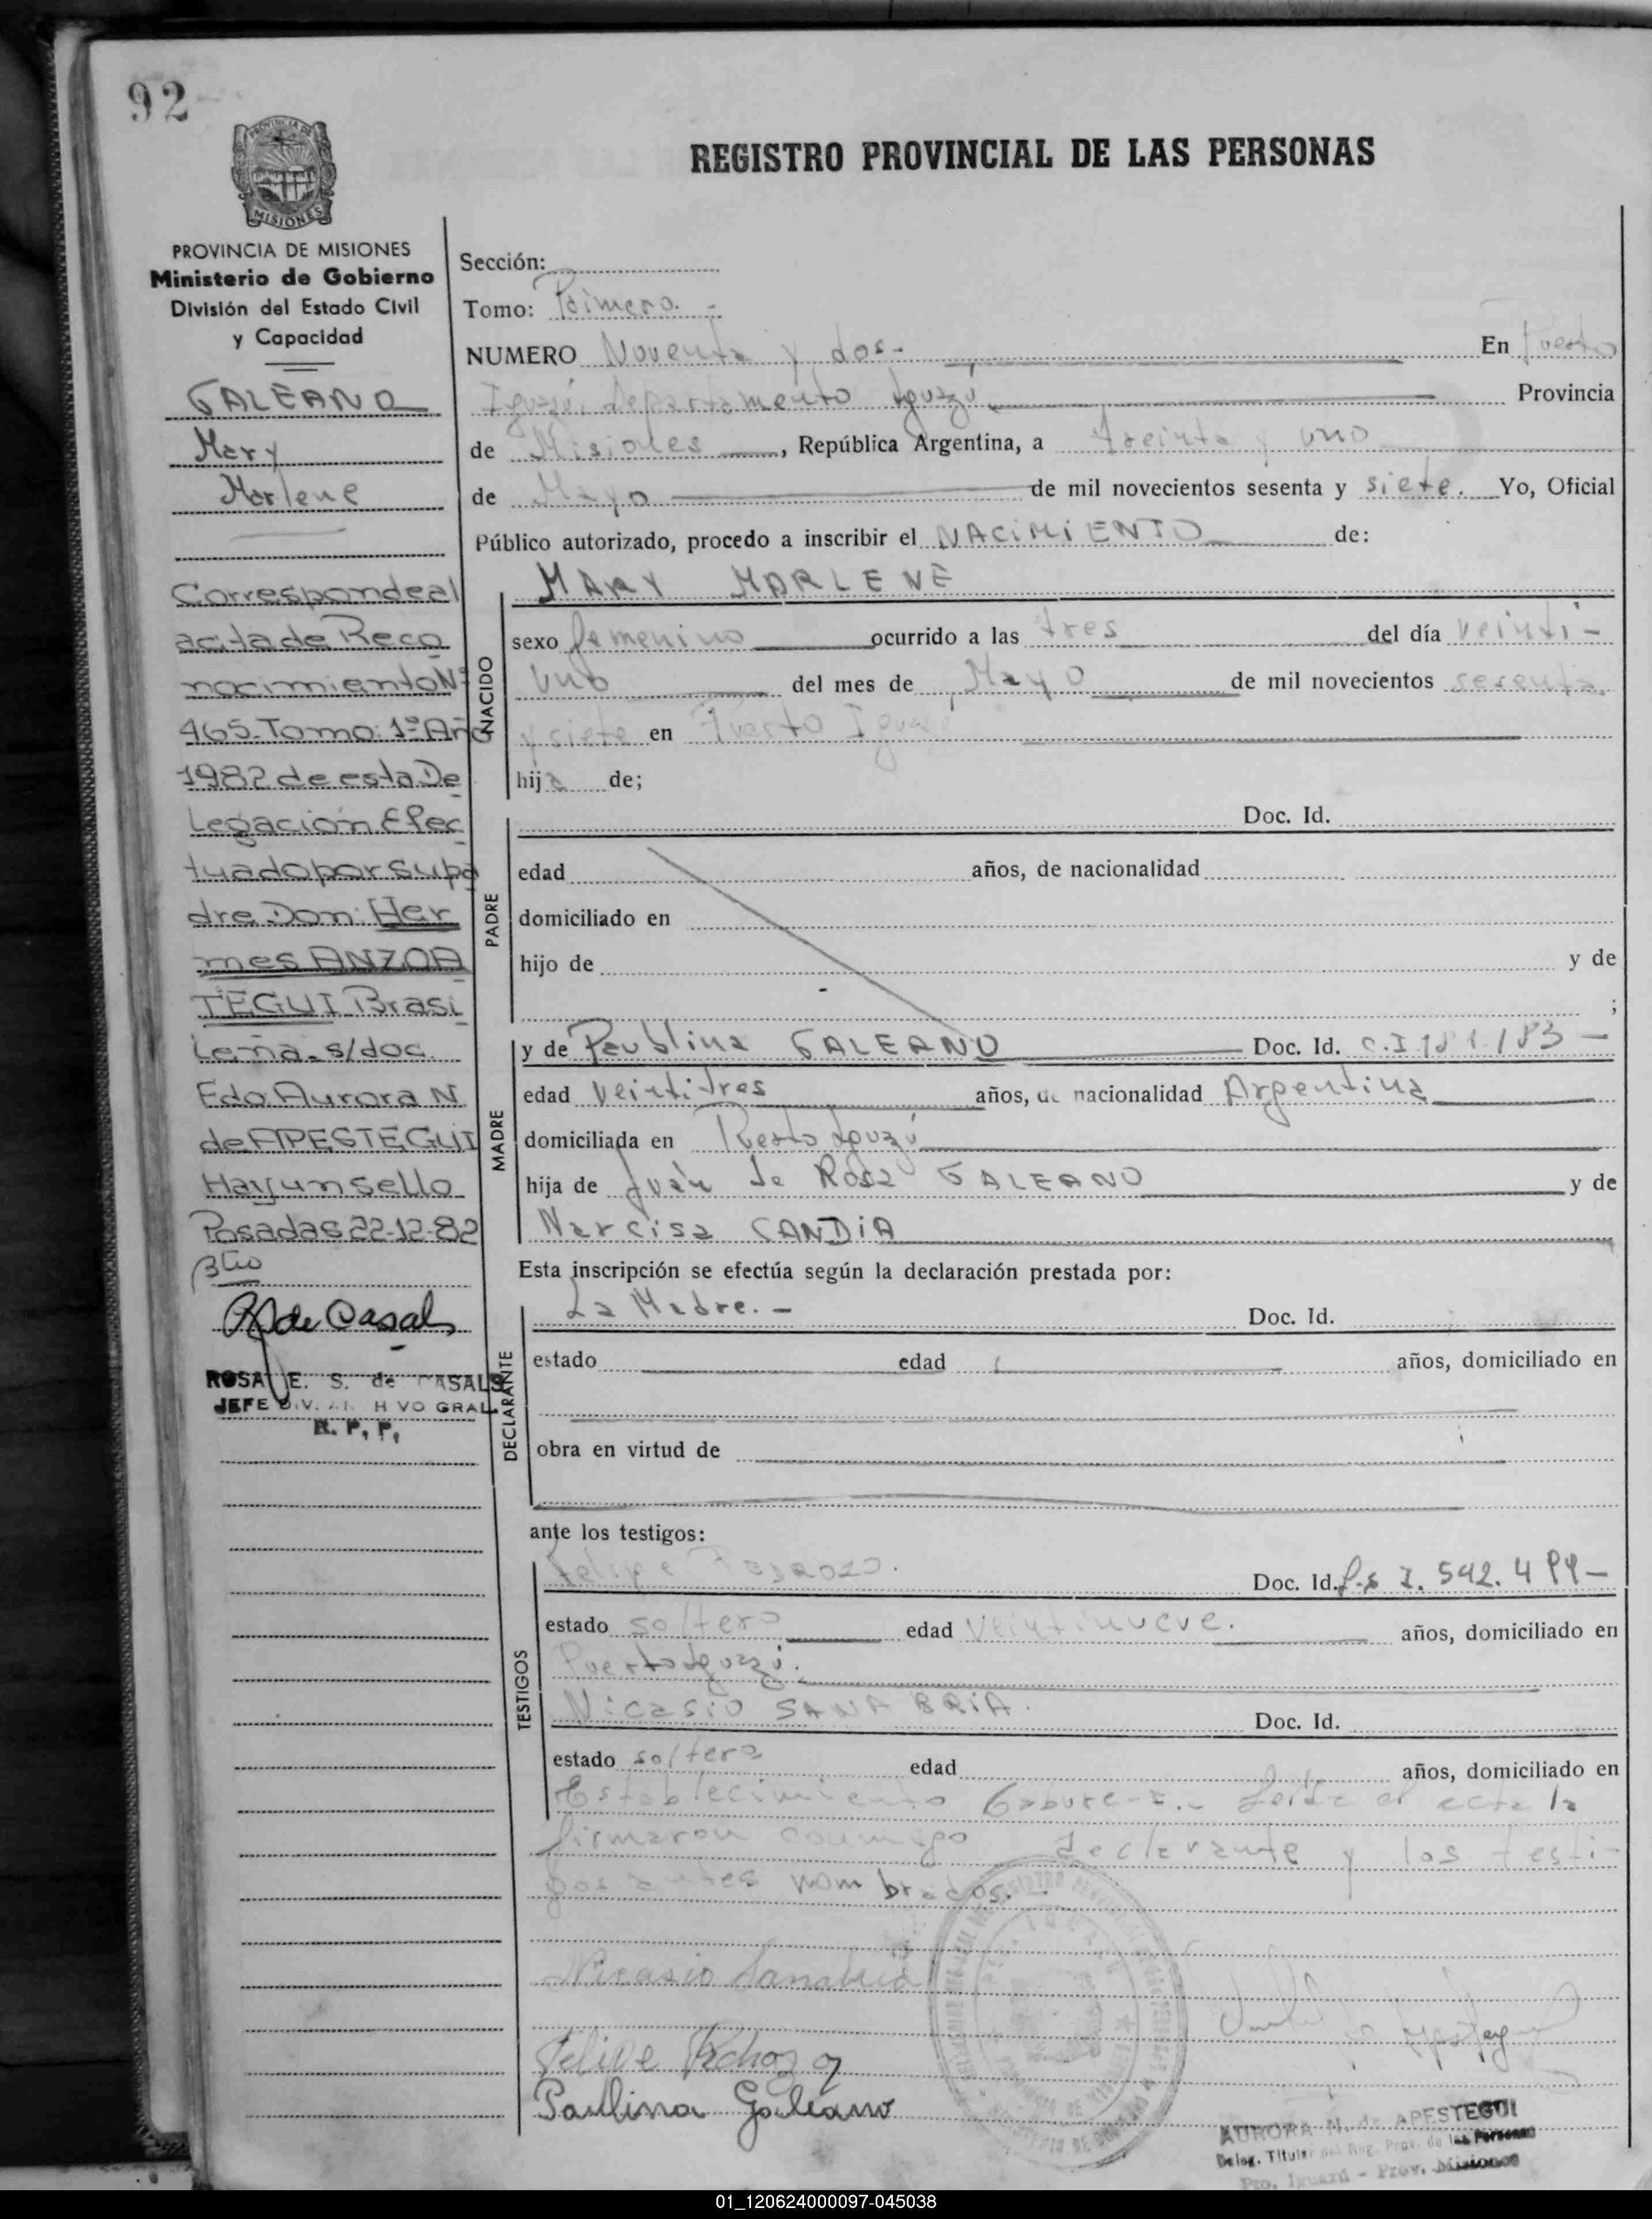 92
PROVINCIA DE
MISIONES
REGISTRO PROVINCIAL DE LAS PERSONAS
PROVINCIA DE MISIONES
Ministerio de Gobierno
División del Estado Civil
y Capacidad
GALEANO
Mary
Marlene
Corresponde al
acta de Reco
nocimiento Nº
465-Tomo: 1º Año
1982 de esta De
Legación Efec
tuado por su pa
dre Don: Her
mes ANZOA
TEGUI Brasi
Leña - s/doc.
Fdo. Aurora N.
de APESTEGUI
Hay un sello
Posadas 22-12-82
R de Casals
ROSA E. S. de CASALS
JEFE DIV. ARCHIVO GRAL.
R. P. P.
Sección:
Tomo: Primero. -
NUMERO Noventa y dos- En Puerto
Iguazú, departamento Iguazú Provincia
de Misiones, República Argentina, a treinta y uno
de Mayo de mil novecientos sesenta y siete. Yo, Oficial
Público autorizado, procedo a inscribir el NACIMIENTO de:
MARY MARLENE
NACIDO
sexo femenino ocurrido a las tres del día veinti-
uno del mes de Mayo de mil novecientos sesenta
y siete en Puerto Iguazú
hija de;
PADRE
Doc. Id.
edad años, de nacionalidad
domiciliado en
hijo de y de
;
MADRE
y de Paublina GALEANO Doc. Id. C.I
edad Veintitres años, de nacionalidad Argentina
domiciliada en Puerto Iguazú
hija de Juan de Rosa GALEANO y de
Narcisa CANDIA
Esta inscripción se efectúa según la declaración prestada por:
DECLARANTE
La Madre. - Doc. Id.
estado edad años, domiciliado en
obra en virtud de
ante los testigos:
TESTIGOS
Felipe PEDROZO. Doc. Id.
estado soltero edad veintinueve. años, domiciliado en
Puerto Iguazú.
Nicasio SANABRIA. Doc. Id.
estado soltero edad años, domiciliado en
Establecimiento Cabure-í.- Leída el acta la
firmaron conmigo declarante y los testi-
gos antes nombrados.
Nicasio Sanabria
Felipe
Paublina Galeano
AURORA N. de APESTEGUI
Deleg. Titular del Reg. Prov. de las Personas
Pto. Iguazú - Prov. Misiones
01_120624000097-045038